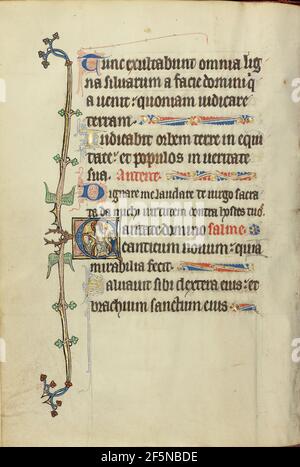 Tunc exultabunt omnia lig
na silvarum a facie domini q̄
a venit: quoniam iudicare
terram.
Iudicabit orbem terre in equi
tate: et populos in veritate
sua. Antene.
Dignare me laudare te virgo sacra
ta da michi virtutem contra hostes tuos
Cantate domino salme.
canticum novum: quia
mirabilia fecit.
Salvavit sibi dextera eius: et
brachium sanctum eius.
alamy
Image ID: 2F5NBDE
www.alamy.com